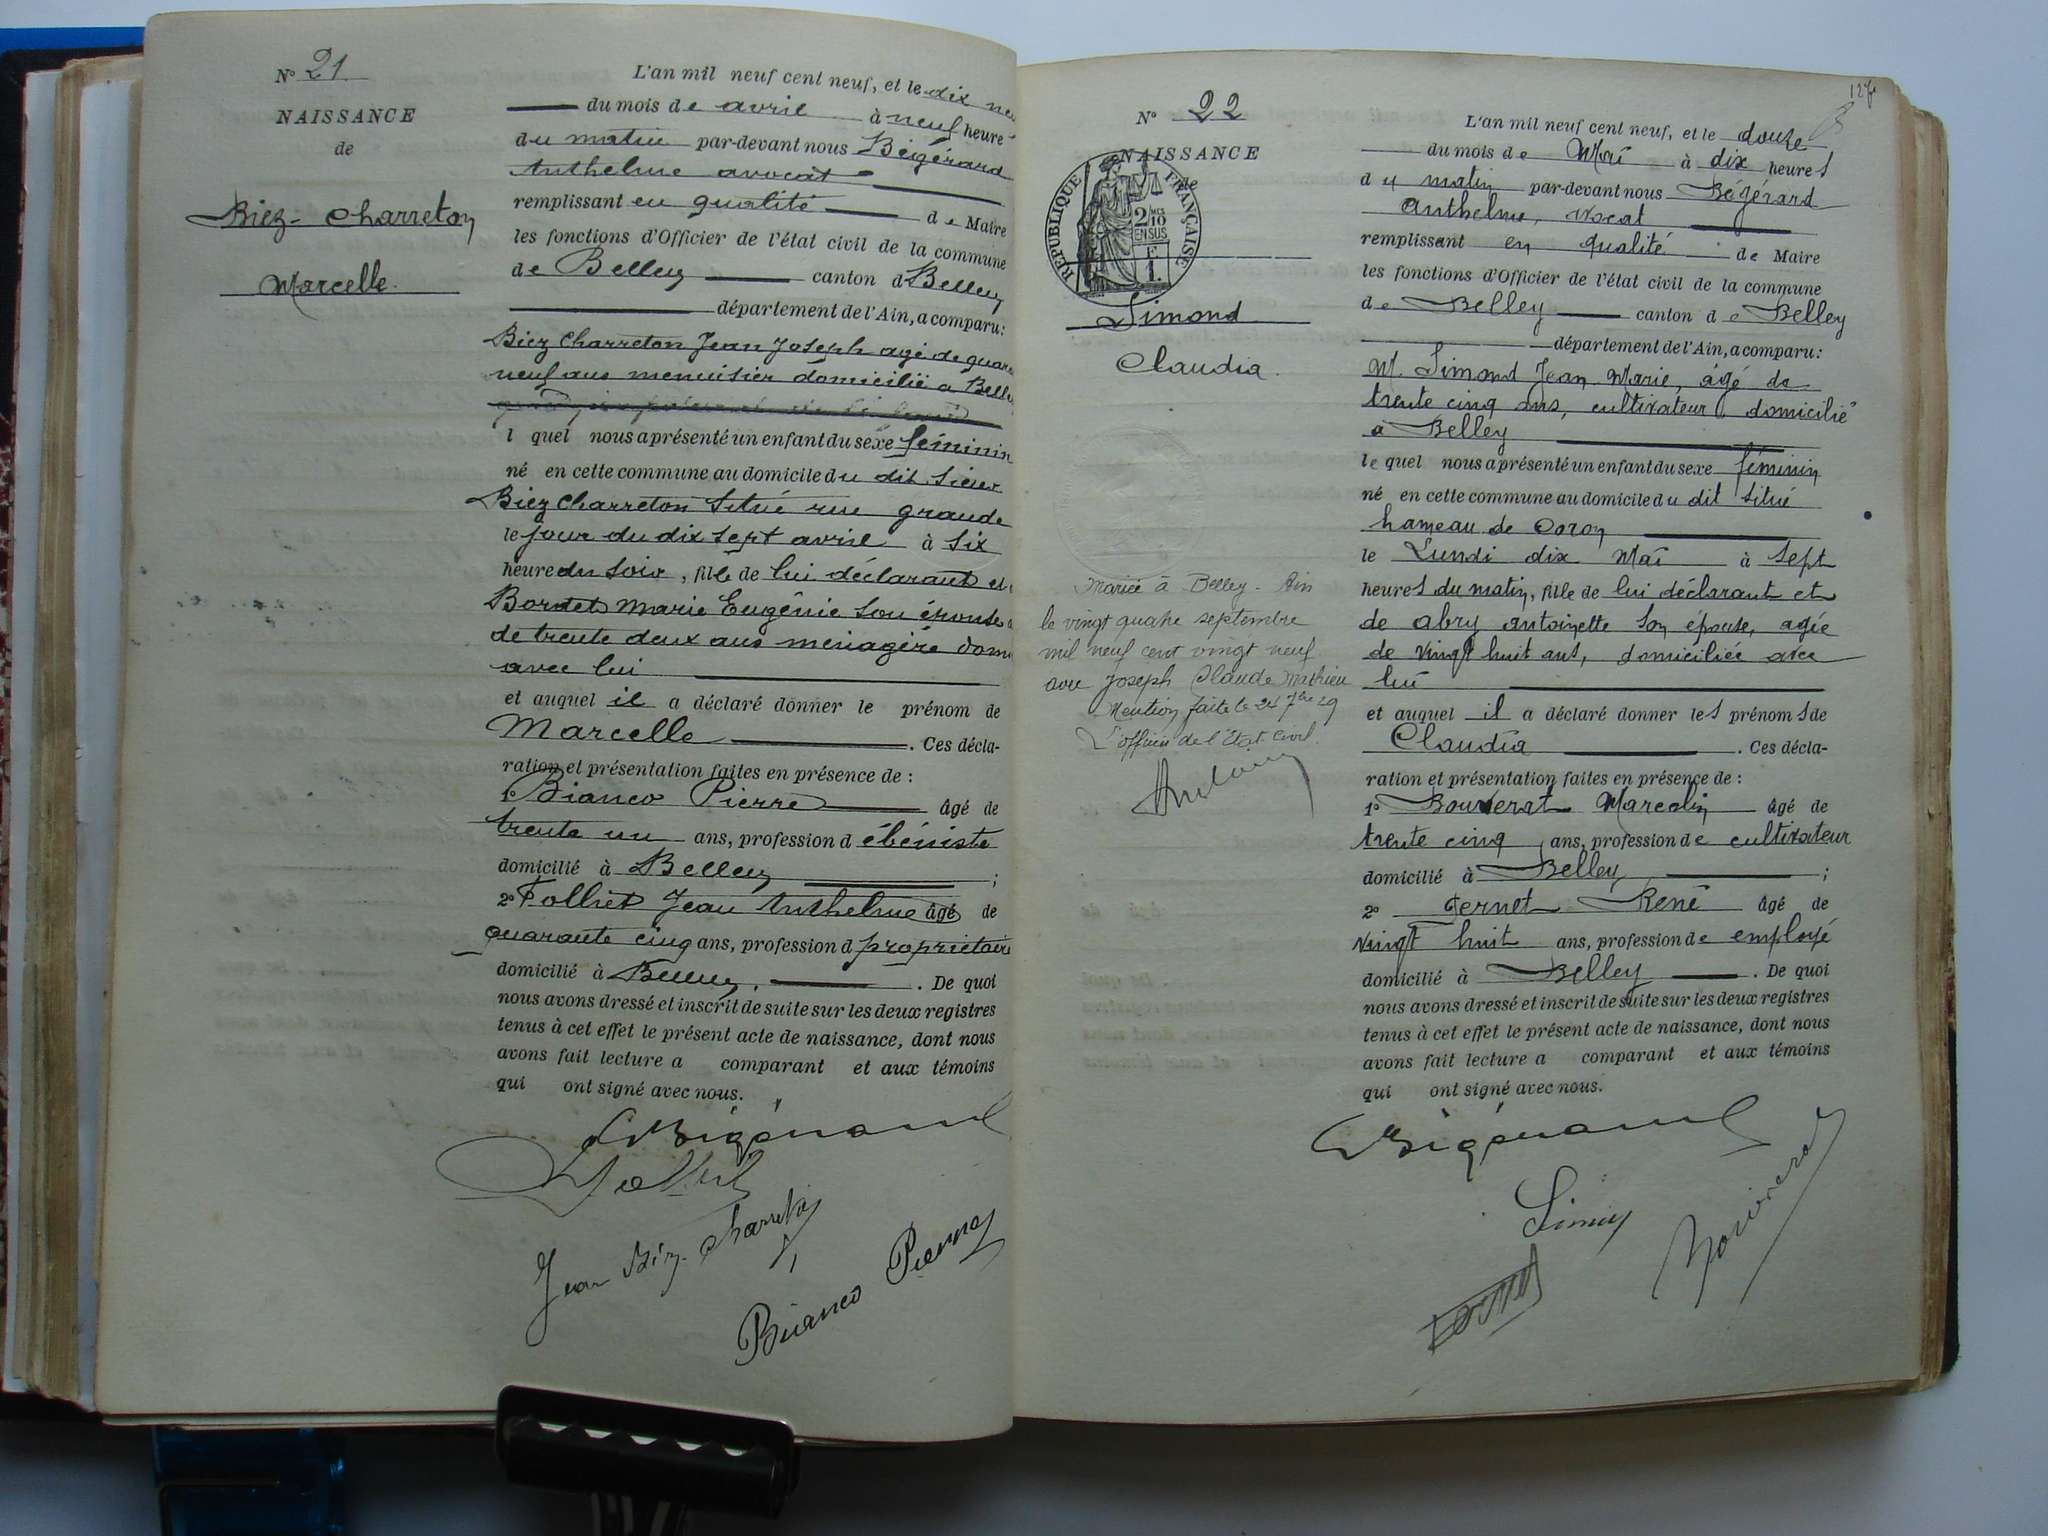 N° 21
NAISSANCE
de
Biez-Charreton
Marcelle.
L'an mil neuf cent neuf, et le dix neu
du mois de avril à neuf heure
du matin par-devant nous Bégérard
Anthelme avocat
remplissant en qualité de Maire
les fonctions d'Officier de l'état civil de la commune
de Belley canton d Belley
département de l'Ain, a comparu :
Biez Charreton Jean Joseph agé de quara
neuf ans menuisier domicilié a Belle
l quel nous a présenté un enfant du sexe féminin
né en cette commune au domicile du dit Sieur
Biez Charreton Situé rue grande
le jour du dix sept avril à six
heure du soir, fille de lui déclarant et
Bornet Marie Eugénie Son épouse
de trente deux ans ménagère dom
avec lui
et auquel il a déclaré donner le prénom de
Marcelle . Ces décla-
ration et présentation faites en présence de :
1° Bianco Pierre âgé de
trente un ans, profession d ébéniste
domicilié à Belley ;
2° Folliet Jean Anthelme âgé de
quarante cinq ans, profession d propriétaire
domicilié à Belley . De quoi
nous avons dressé et inscrit de suite sur les deux registres
tenus à cet effet le présent acte de naissance, dont nous
avons fait lecture a comparant et aux témoins
qui ont signé avec nous.
Bégérard
Folliet
Jean Biez-Charreton
Bianco Pierre
N° 22
NAISSANCE
de
RÉPUBLIQUE FRANÇAISE
2/10
EN SUS
F
1.
Simond
Claudia.
Mariée à Belley-Ain
le vingt quatre septembre
mil neuf cent vingt neuf
avec Joseph Claude Mathieu
Mention faite le 24 7bre 29
L'officier de l'Etat Civil.
L'an mil neuf cent neuf, et le douze
du mois de Mai à dix heures
du matin par-devant nous Bégérard
Anthelme, avocat
remplissant en qualité de Maire
les fonctions d'Officier de l'état civil de la commune
de Belley canton de Belley
département de l'Ain, a comparu :
M. Simond Jean Marie, âgé de
trente cinq ans, cultivateur, domicilié
à Belley
le quel nous a présenté un enfant du sexe féminin
né en cette commune au domicile du dit situé
hameau de Coron
le Lundi dix Mai à sept
heures du matin, fille de lui déclarant et
de abry antoinette son épouse, agée
de vingt huit ans, domiciliée avec
lui
et auquel il a déclaré donner les prénoms de
Claudia . Ces décla-
ration et présentation faites en présence de :
1° Bouverat Marcelin âgé de
trente cinq ans, profession de cultivateur
domicilié à Belley ;
2° Fernet René âgé de
vingt huit ans, profession de employé
domicilié à Belley . De quoi
nous avons dressé et inscrit de suite sur les deux registres
tenus à cet effet le présent acte de naissance, dont nous
avons fait lecture a comparant et aux témoins
qui ont signé avec nous.
Bégérard
Bouverat